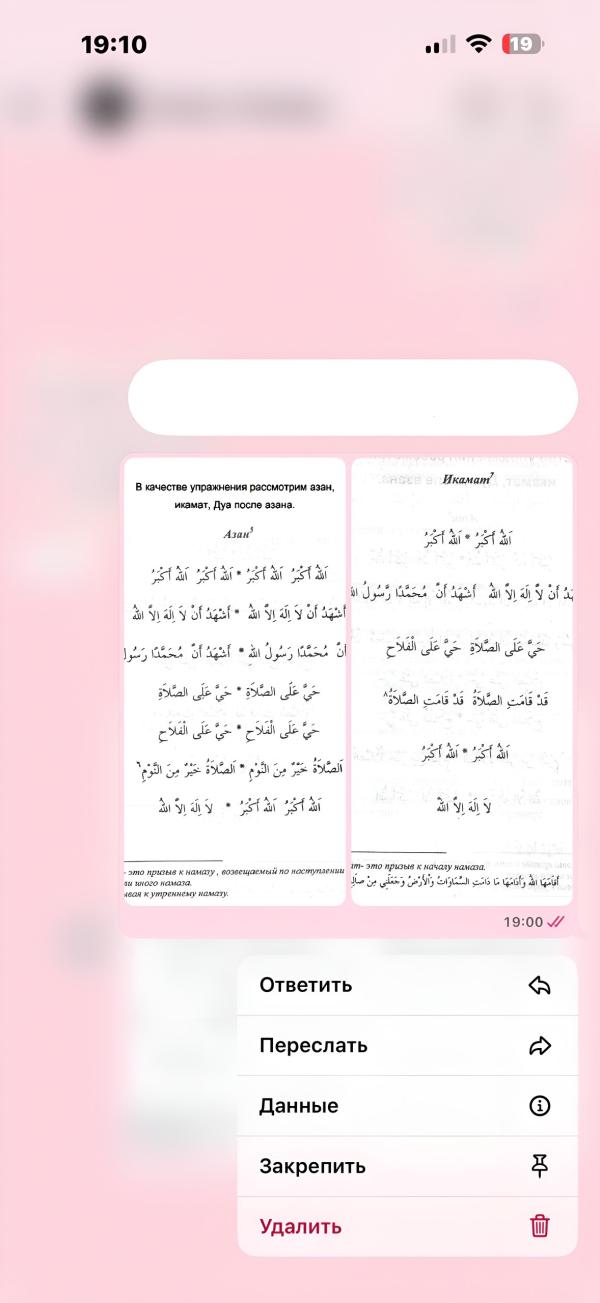 19:10
19
В качестве упражнения рассмотрим азан,
икамат, Дуа после азана.
Азан⁵
اَللهُ أَكْبَرُ اَللهُ أَكْبَرُ * اَللهُ أَكْبَرُ اَللهُ أَكْبَرُ
أَشْهَدُ أَنْ لاَ اِلَهَ اِلاَّ اللهُ * أَشْهَدُ أَنْ لاَ اِلَهَ اِلاَّ اللهُ
أَنَّ مُحَمَّدًا رَسُولُ اللهِ * أَشْهَدُ أَنَّ مُحَمَّدًا
حَيَّ عَلَى الصَّلاَةِ * حَيَّ عَلَى الصَّلاَةِ
حَيَّ عَلَى الْفَلاَحِ * حَيَّ عَلَى الْفَلاَحِ
اَلصَّلاَةُ خَيْرٌ مِنَ النَّوْمِ * اَلصَّلاَةُ خَيْرٌ مِنَ النَّوْمِ٦
اَللهُ أَكْبَرُ اَللهُ أَكْبَرُ * لاَ اِلَهَ اِلاَّ اللهُ
- это призыв к намазу , возвещаемый по наступлении
иного намаза.
к утреннему намазу.
Икамат⁷
اَللهُ أَكْبَرُ * اَللهُ أَكْبَرُ
أَنْ لاَ اِلَهَ اِلاَّ اللهُ أَشْهَدُ أَنَّ مُحَمَّدًا رَّسُولُ
حَيَّ عَلَى الصَّلاَةِ حَيَّ عَلَى الْفَلاَحِ
قَدْ قَامَتِ الصَّلاَةُ قَدْ قَامَتِ الصَّلاَةُ٨
اَللهُ أَكْبَرُ * اَللهُ أَكْبَرُ
لاَ اِلَهَ اِلاَّ اللهُ
- это призыв к началу намаза.
أَقَامَهَا اللهُ وَأَدَامَهَا مَا دَامَتِ السَّمَاوَاتُ وَالْأَرْضُ وَجَعَلَنِي مِنْ
19:00
Ответить
Переслать
Данные
Закрепить
Удалить